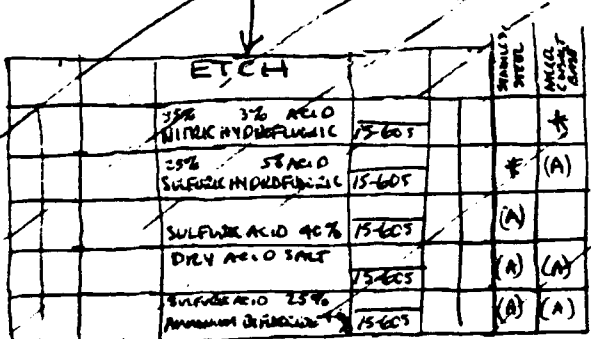 ETCH
STAINLESS STEEL
NICKEL COBALT BASE
35% 3% ACID
NITRIC HYDROFLUORIC 15-605 *
25% 5% ACID
SULFURIC HYDROFLUORIC 15-605 * (A)
SULFURIC ACID 40% 15-605 (A)
DRY ACID SALT
15-605 (A) (A)
SULFURIC ACID 25%
AMMONIUM BIFLUORIDE 15-605 (A) (A)